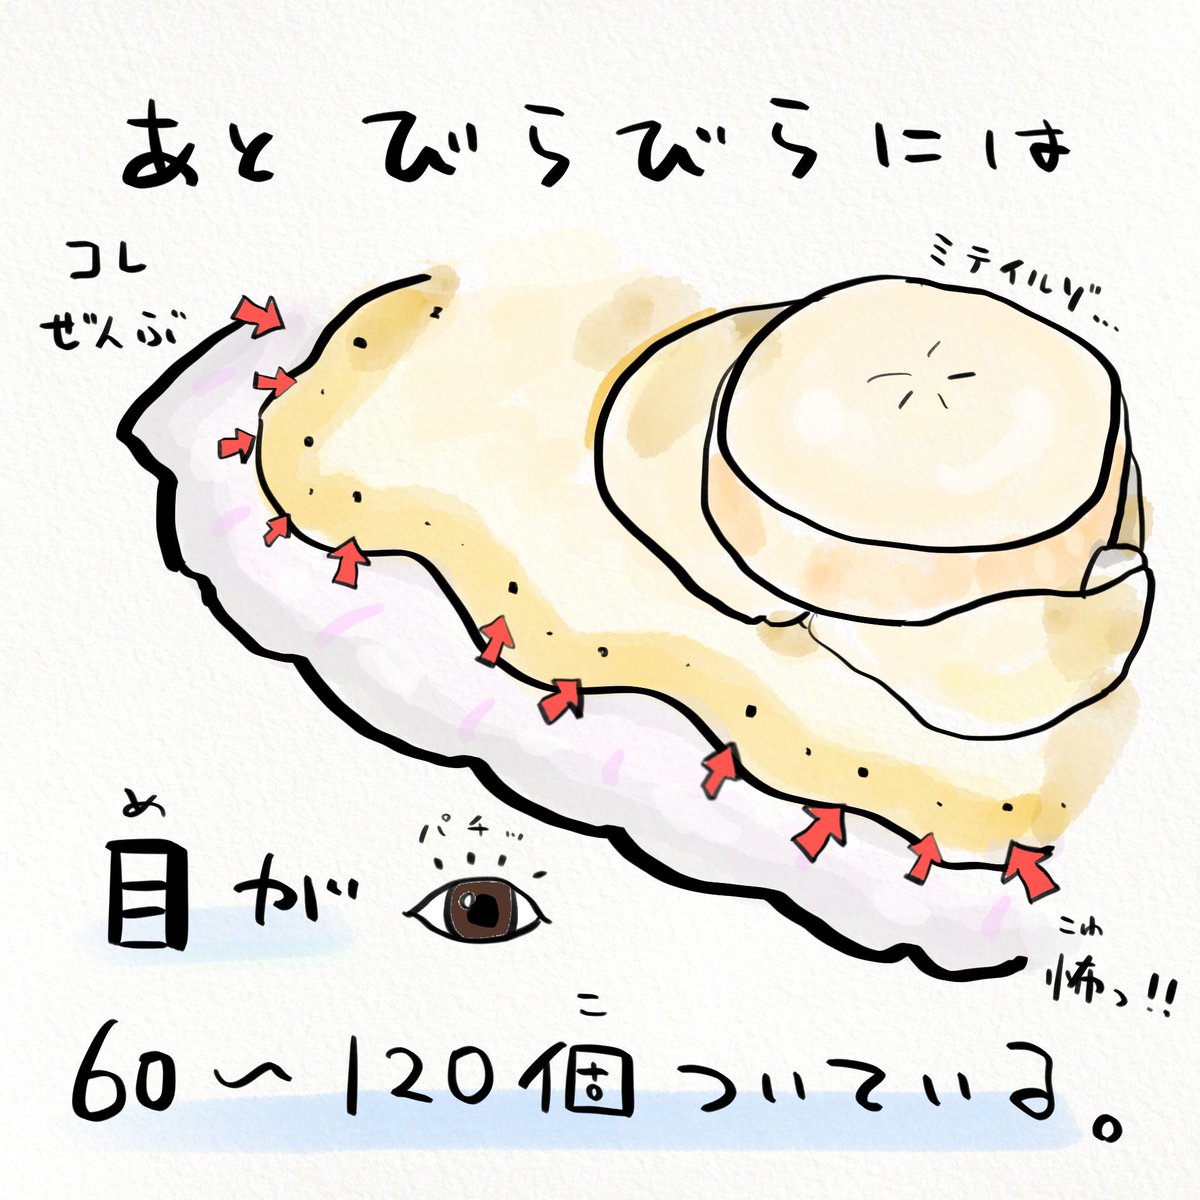 あと びらびらには
コレ
ぜんぶ
ミテイルゾ…
め
目が
パチッ…
こわ
怖っ!!
こ
60〜120個ついている。